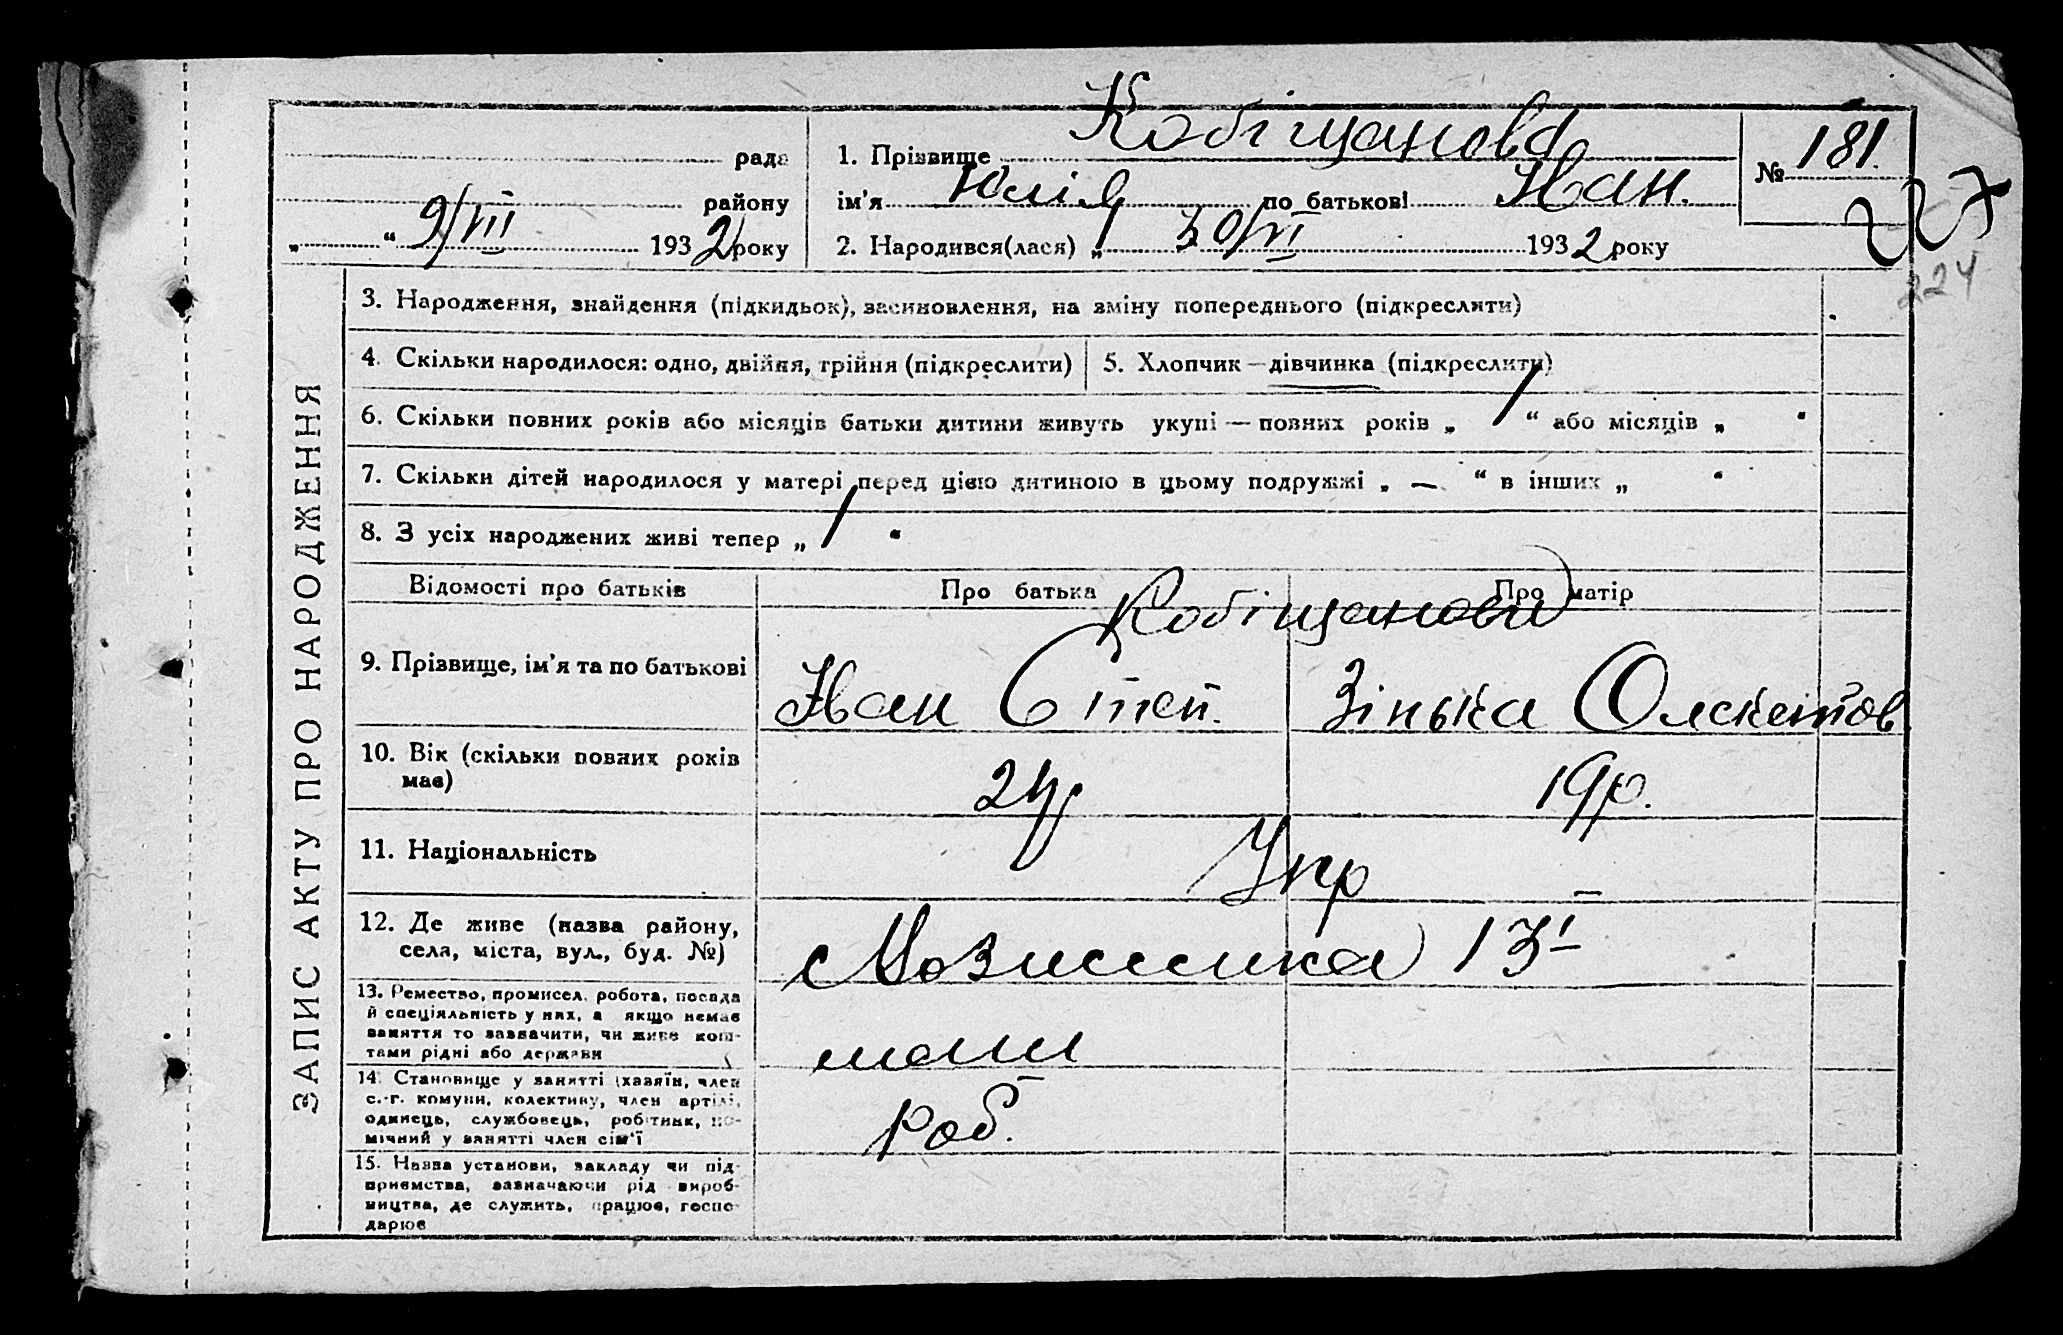 Кобіщанова
рада
1. Прізвище
№ 181.
району
ім'я Юлія по батькові Іван.
227
„ “ 9/VII 1932 року
2. Народився(лася) „ 30/VI 1932 року
224
ЗАПИС АКТУ ПРО НАРОДЖЕННЯ
3. Народження, знайдення (підкидьок), засиновлення, на зміну попереднього (підкреслити)
4. Скільки народилося: одно, двійня, трійня (підкреслити)
5. Хлопчик — дівчинка (підкреслити)
6. Скільки повних років або місяців батьки дитини живуть укупі — повних років „ 1 “ або місяців „ “
7. Скільки дітей народилося у матері перед цією дитиною в цьому подружжі „ — “ в інших „ “
8. З усіх народжених живі тепер „ 1 “
Відомості про батьків
Про батька
Про матір
Кобіщанови
9. Прізвище, ім'я та по батькові
Іван Степ.
Зінька
10. Вік (скільки повних років має)
24р
19р.
11. Національність
Укр
12. Де живе (назва району,
села, міста, вул., буд. №)
13
13. Ремество, промисел, робота, посада
й спеціяльність у них, а якщо немає
заняття то зазначити, чи живе кош-
тами рідні або держави
14. Становище у занятті (хазяїн, член
с.-г. комуни, колективу, член артілі,
одинець, службовець, робітник, по-
мічний у занятті член сім'ї
роб.
15. Назва установи, закладу чи під-
приємства, зазначаючи рід вироб-
ництва, де служить, працює, госпо-
дарює